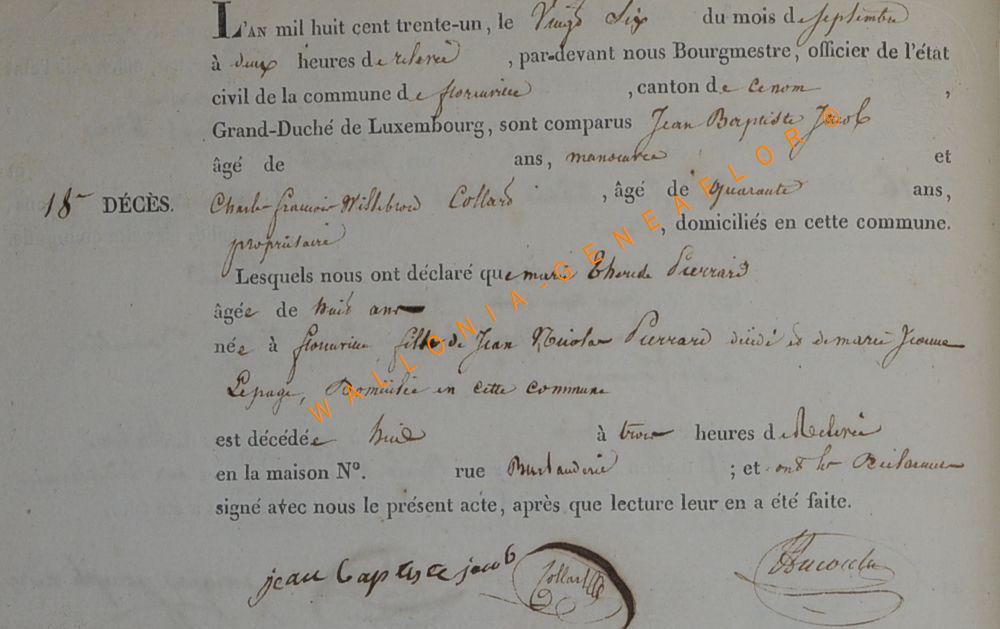 L'AN mil huit cent trente-un, le Vingt Six du mois de septembre
à deux heures de relevée , par-devant nous Bourgmestre, officier de l'état
civil de la commune de florenville , canton de ,
Grand-Duché de Luxembourg, sont comparus Jean Baptiste Jacob
âgé de ans, manoeuvre et
18e DÉCÈS. Charles françois Willebrord Collard , âgé de quarante ans,
propriétaire , domiciliés en cette commune.
Lesquels nous ont déclaré que marie Therese Pierrard
âgée de huit ans
née à florenville fille de Jean Nicolas Pierrard décédé et de marie Jeanne
Lepage, Domiciliée en cette commune
est décédée hier à trois heures de Relevée
en la maison N°. rue ; et ont les Déclarans
signé avec nous le présent acte, après que lecture leur en a été faite.
jean baptiste jacob Collard
WALLONIA-GENEAFLOR©